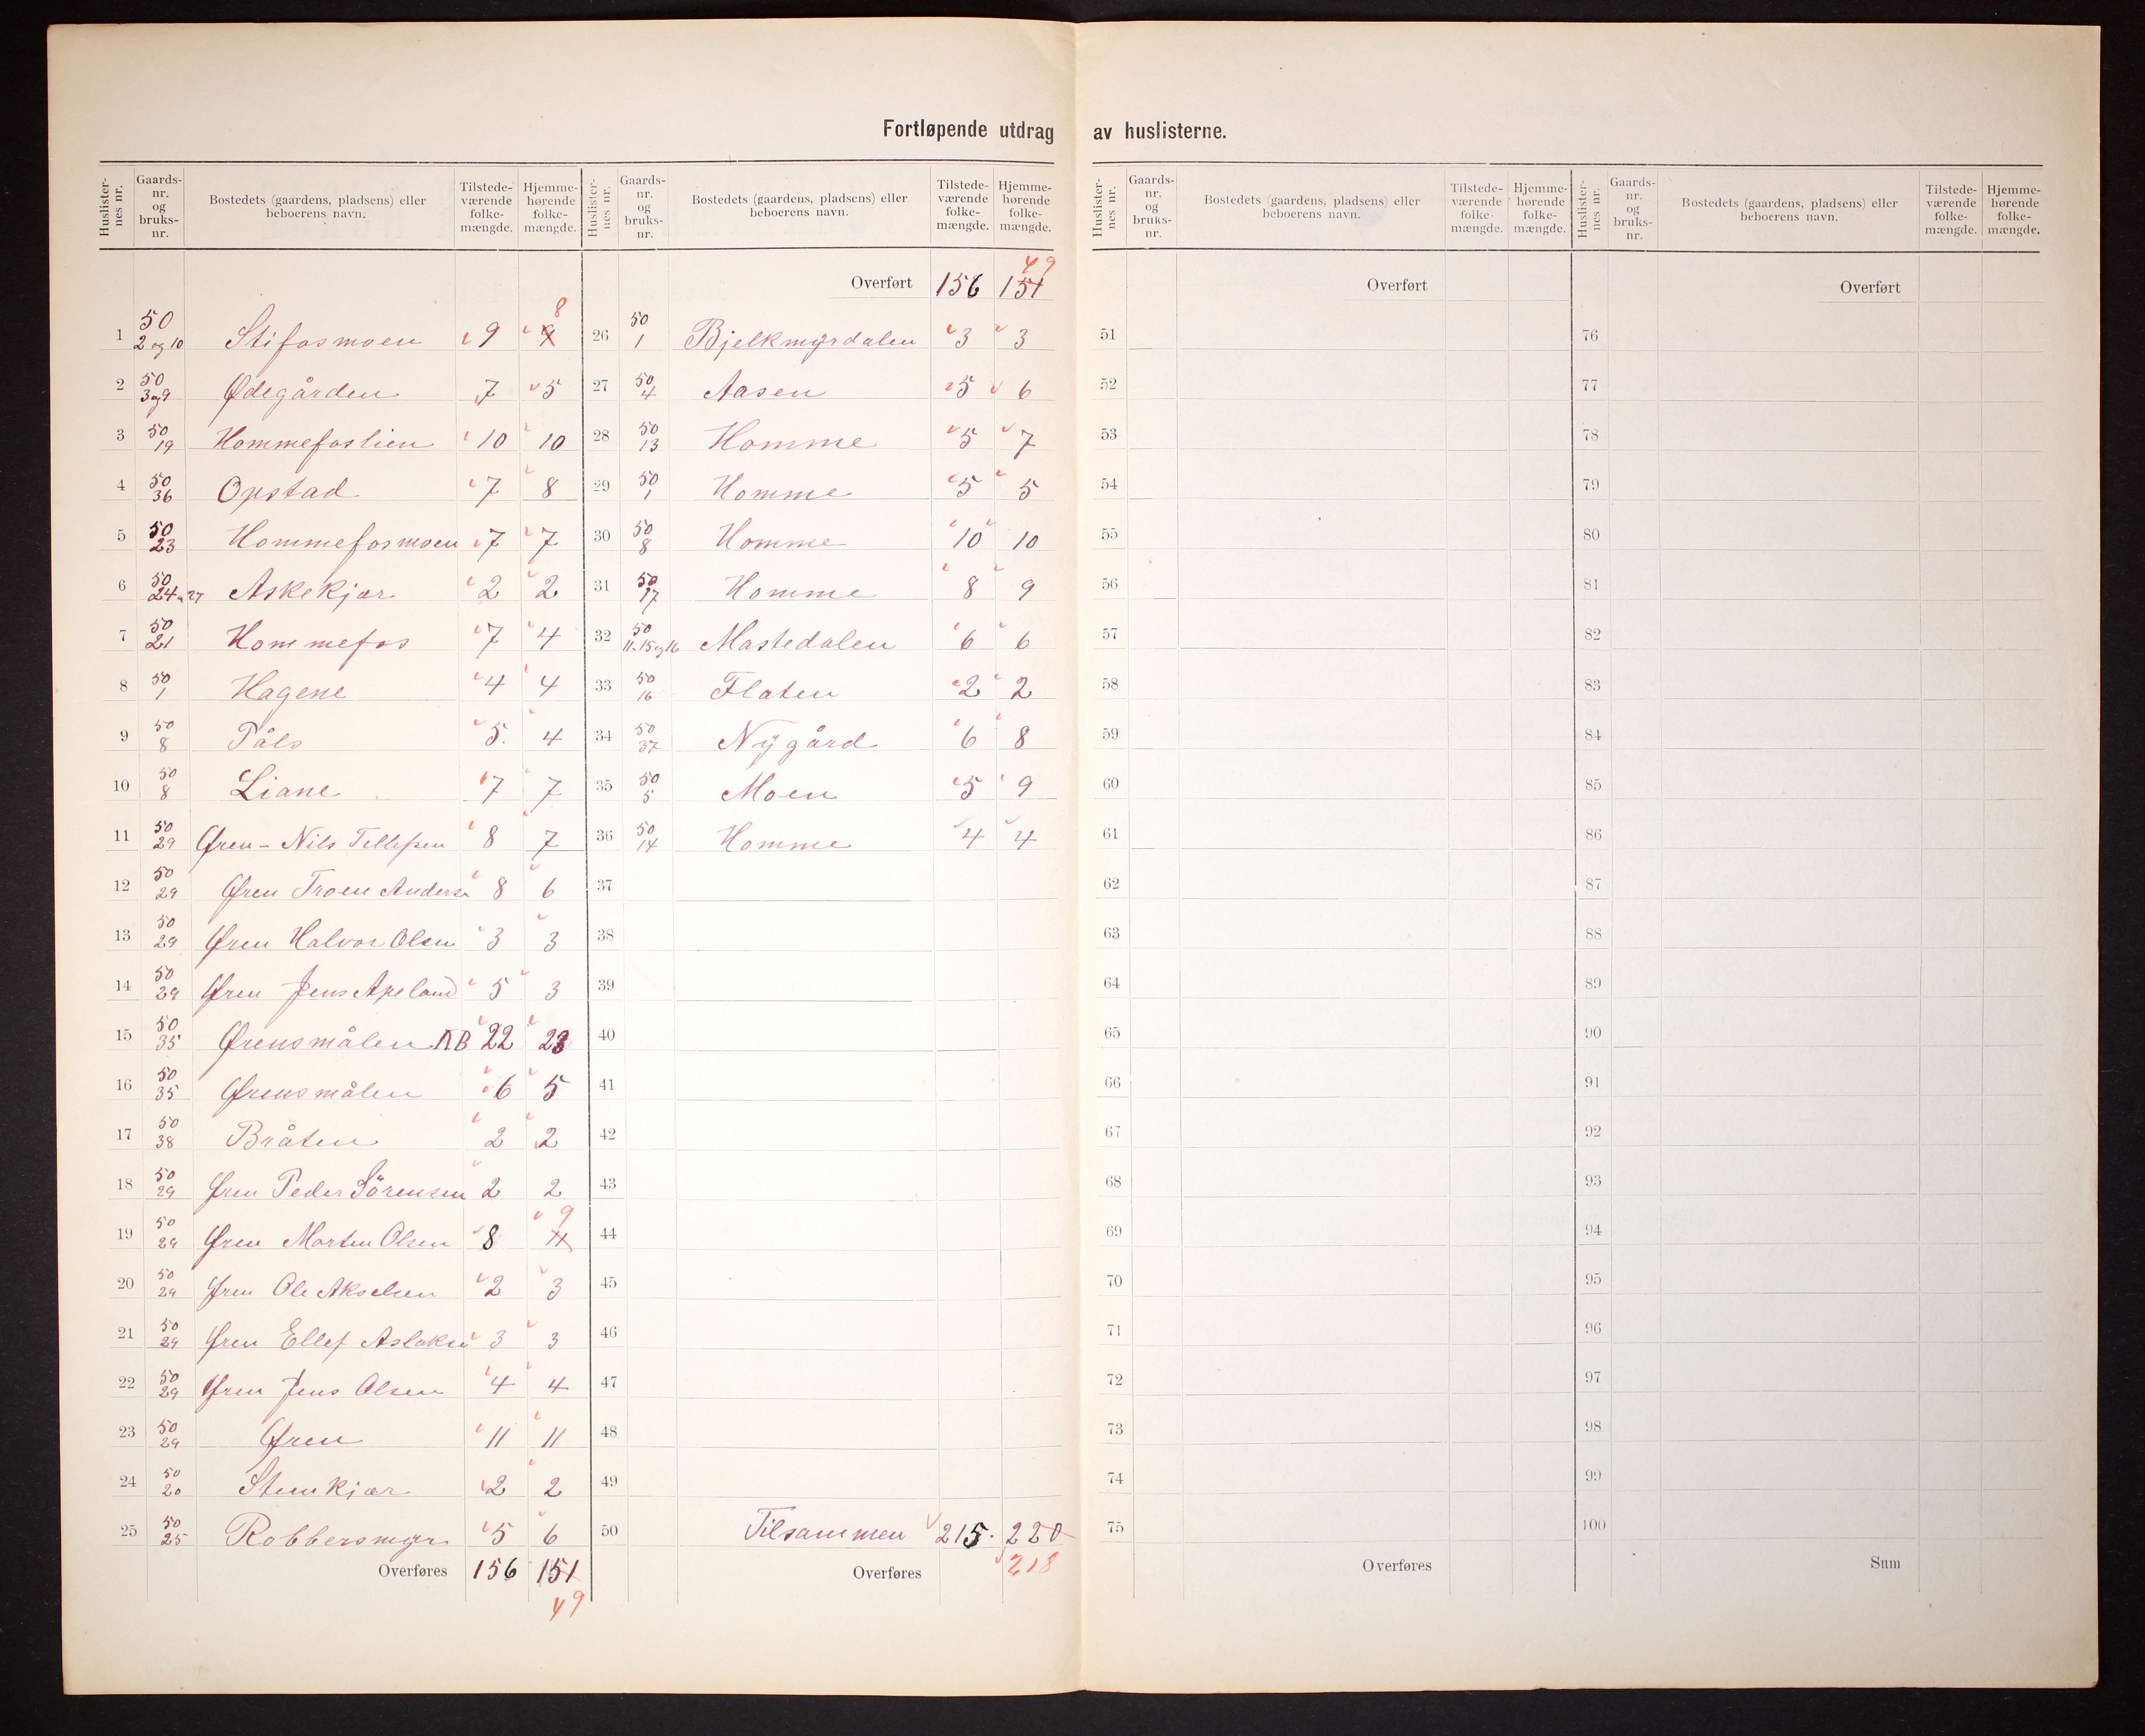 Fortløpende utdrag av huslisterne.
Huslister-nes nr. Gaards-nr. og bruks-nr. Bostedets (gaardens, pladsens) eller beboerens navn. Tilstede-værende folke-mængde. Hjemme-hørende folke-mængde.
1 50 2 og 10 Stifosmoen 9 9 8
2 50 3og9 Ødegården 7 5
3 50 19 Hommefoslien 10 10
4 50 36 Opstad 7 8
5 50 23 Hommefosmoen 7 7
6 50 24 27 Askekjær 2 2
7 50 21 Hommefos 7 4
8 50 1 Hagene 4 4
9 50 8 Påls 5. 4
10 50 8 Liane 7 7
11 50 29 Øren - Nils Tellefsen 8 7
12 50 29 Øren Troen Anderse 8 6
13 50 29 Øren Halvor Olsen 3 3
14 50 29 Øren Jens Apeland 5 3
15 50 35 Ørensmålen AB 22 23
16 50 35 Ørensmålen 6 5
17 50 38 Bråten 2 2
18 50 29 Øren Peder Sörensen 2 2
19 50 29 Øren Morten Olsen 8 11 9
20 50 29 Øren Ole Akselsen 2 3
21 50 29 Øren Ellef Aslakse 3 3
22 50 29 Øren Jens Olsen 4 4
23 50 29 Øren 11 11
24 50 20 Stemkjær 2 2
25 50 25 Robbersmyr 5 6
Overføres 156 151
49
Huslister-nes nr. Gaards-nr. og bruks-nr. Bostedets (gaardens, pladsens) eller beboerens navn. Tilstede-værende folke-mængde. Hjemme-hørende folke-mængde.
49
Overført 156 151
26 50 1 Bjelkmyrdalen 3 3
27 50 4 Aasen 5 6
28 50 13 Homme 5 7
29 50 1 Homme 5 5
30 50 8 Homme 10 10
31 50 17 Homme 8 9
32 50 11-15og16 Mastedalen 6 6
33 50 16 Flaten 2 2
34 50 37 Nygård 6 8
35 50 5 Moen 5 9
36 50 14 Homme 4 4
37
38
39
40
41
42
43
44
45
46
47
48
49
50 Tilsammen 215. 220
Overføres 218
Huslister-nes nr. Gaards-nr. og bruks-nr. Bostedets (gaardens, pladsens) eller beboerens navn. Tilstede-værende folke-mængde. Hjemme-hørende folke-mængde.
Overført
51
52
53
54
55
56
57
58
59
60
61
62
63
64
65
66
67
68
69
70
71
72
73
74
75
Overføres
Huslister-nes nr. Gaards-nr. og bruks-nr. Bostedets (gaardens, pladsens) eller beboerens navn. Tilstede-værende folke-mængde. Hjemme-hørende folke-mængde.
Overført
76
77
78
79
80
81
82
83
84
85
86
87
88
89
90
91
92
93
94
95
96
97
98
99
100
Sum